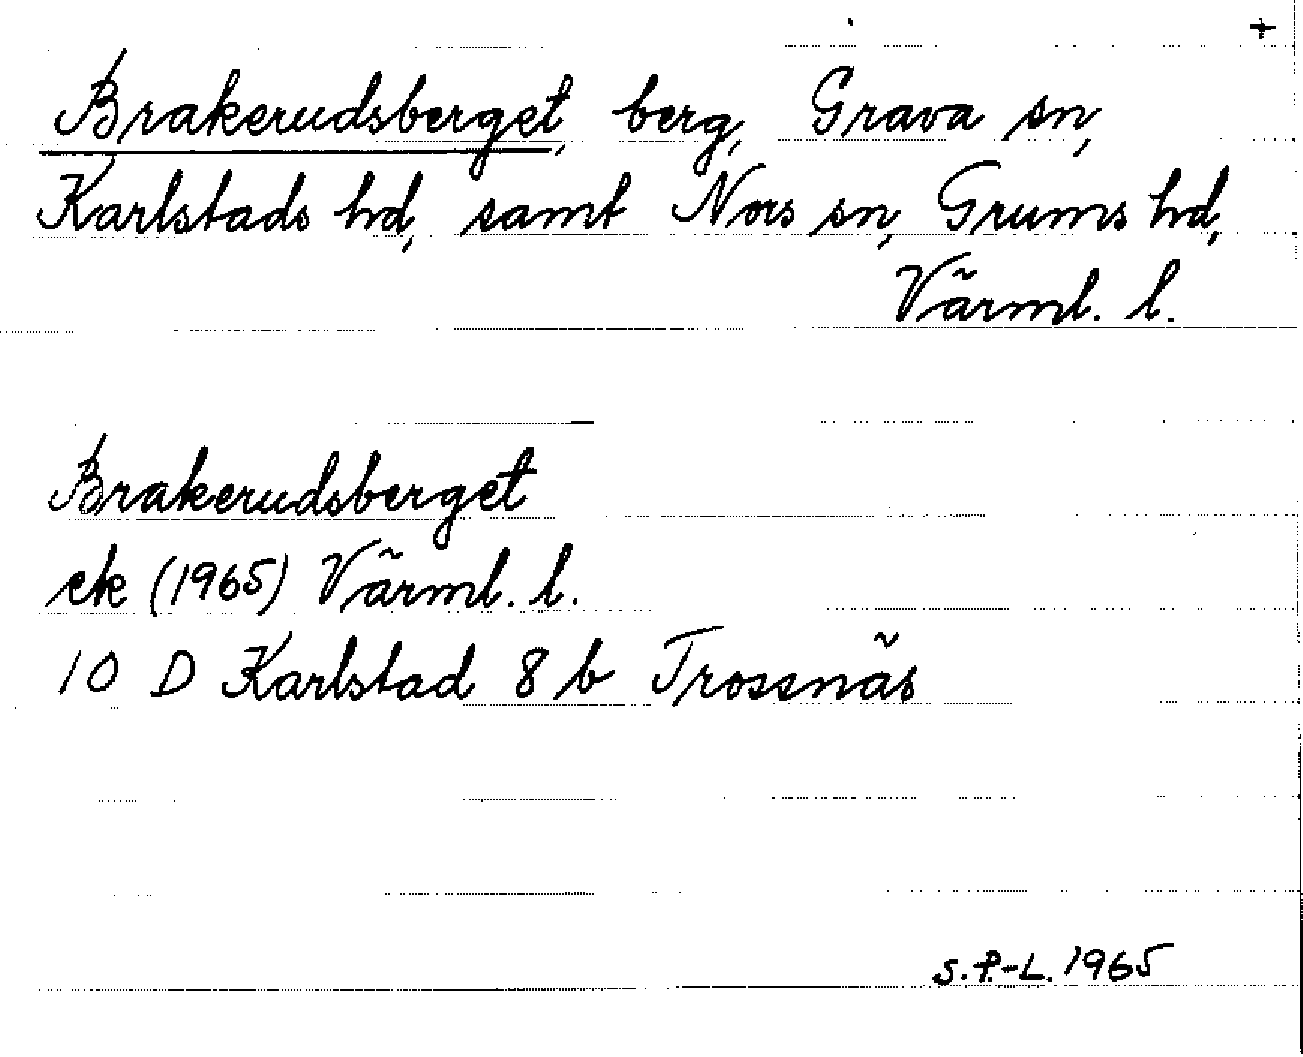 +
Brakerudsberget, berg, Grava sn,
Karlstads hd, samt Nors sn, Grums hd,
Värml. l.
Brakerudsberget
ek (1965) Värml. l.
10 D Karlstad 8 b Trossnäs
S.P.-L. 1965